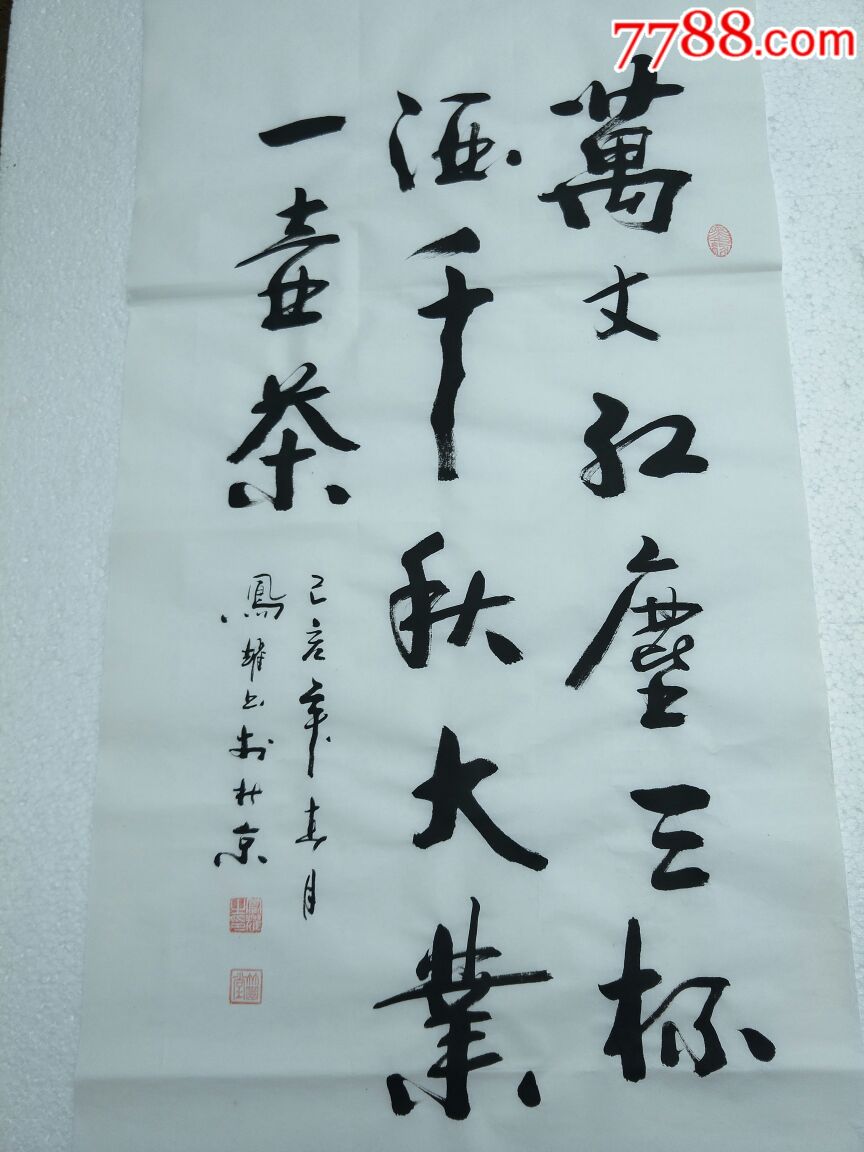 7788.com
萬丈红塵三杯
酒千秋大業
一壺茶
己亥年春月
鳳耀书於北京